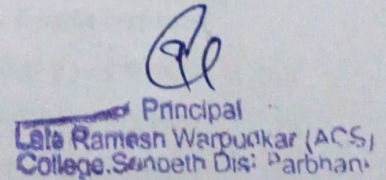 Principal
Late Ramesh Warpudkar (ACS)
College. Sonpeth Dis: Parbhani